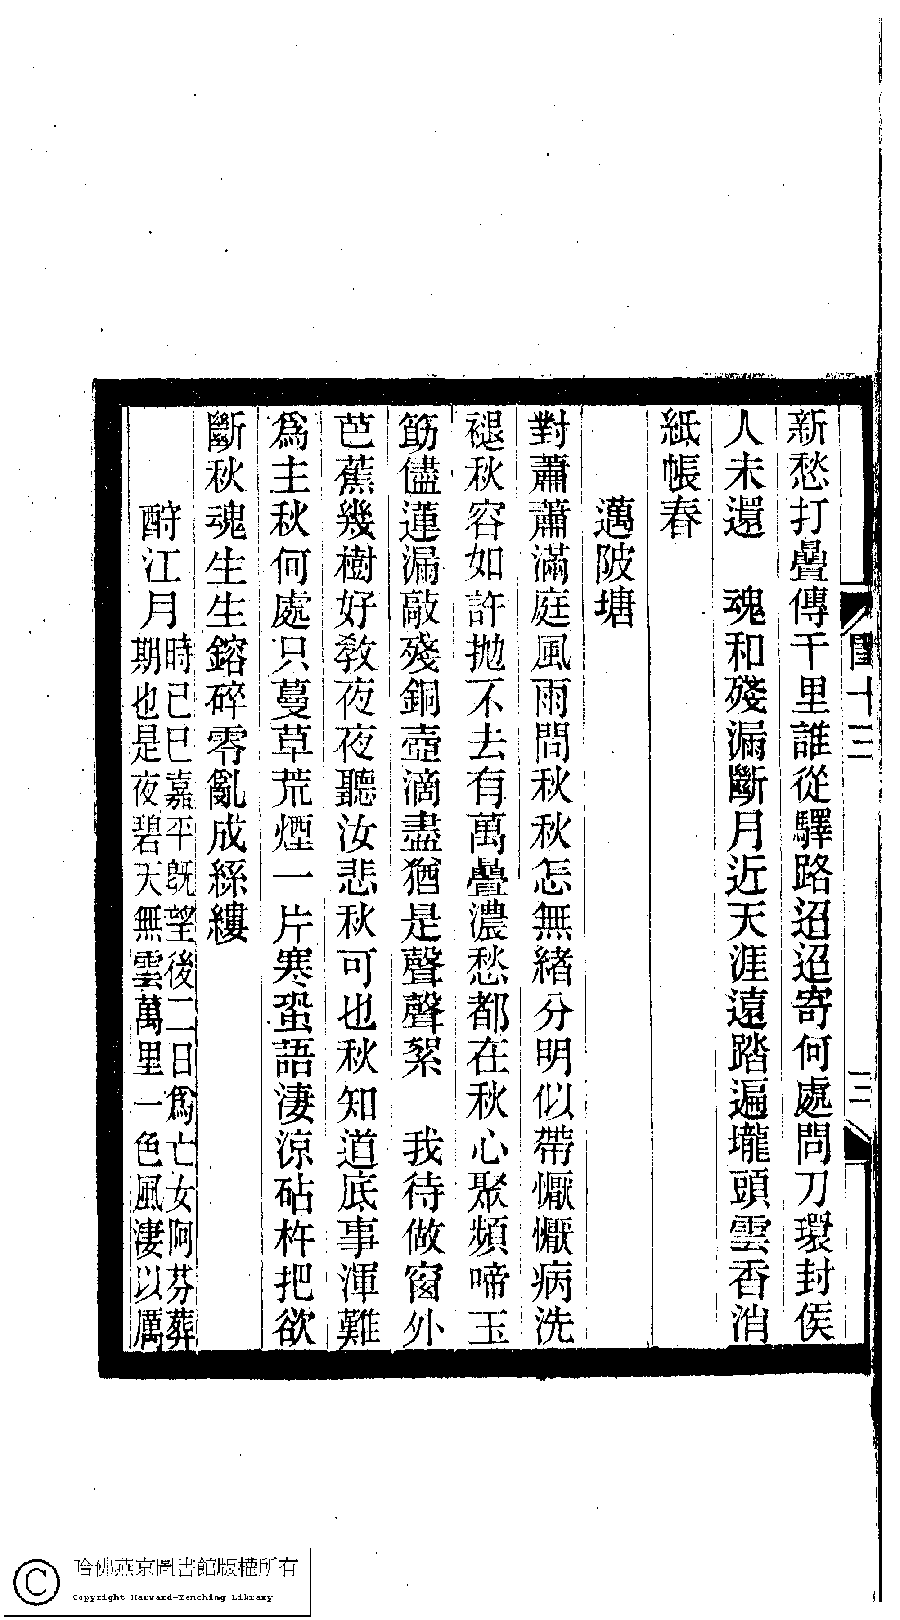 新愁打疊傳千里誰從驛路迢迢寄何處問刀環封侯
人未還　魂和殘漏斷月近天涯遠踏遍壠頭雲香消
紙帳春
邁陂塘
對蕭蕭滿庭風雨問秋秋怎無緒分明似帶懨懨病洗
褪秋容如許拋不去有萬疊濃愁都在秋心聚頻啼玉
筯儘蓮漏敲殘銅壺滴盡猶是聲聲絮　我待做窗外
芭蕉幾樹好敎夜夜聽汝悲秋可也秋知道底事渾難
爲主秋何處只蔓草荒煙一片寒蛩語淒涼砧杵把欲
斷秋魂生生鎔碎零亂成絲縷
酹江月時己巳嘉平既望後二日爲亡女阿芬葬
期也是夜碧天無雲萬里一色風淒以厲
閨十三
三
哈佛燕京圖書館版權所有
Copyright Harvard-Yenching Library